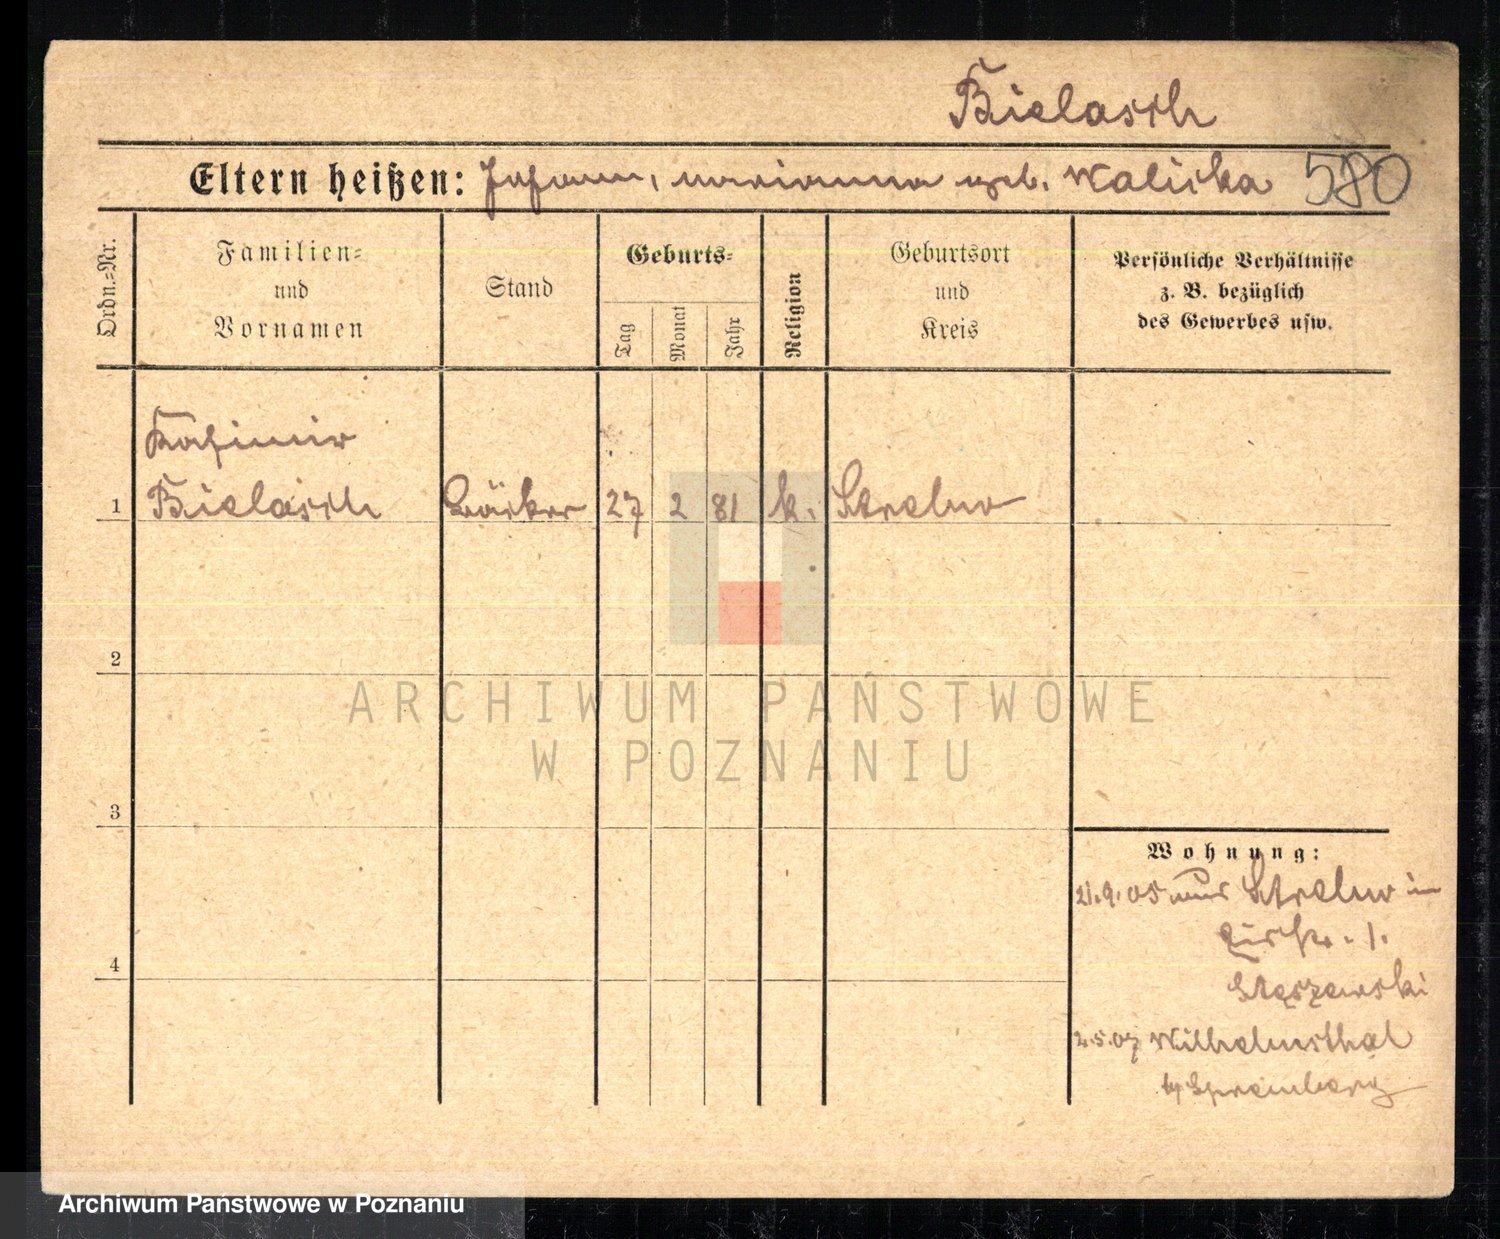 Bielasch
Eltern heißen: Johann, Marianna geb. Walicka 580
Ordn.-Nr.
Familien-
und
Vornamen
Stand
Geburts-
Tag
Monat
Jahr
Religion
Geburtsort
und
Kreis
Persönliche Verhältnisse
z. B. bezüglich
des Gewerbes usw.
Kasimir
1 Bielasch Bäcker 27 2 81 k. Strelno
2
ARCHIWUM PAŃSTWOWE
W POZNANIU
3
Wohnung:
21.9.05 aus Strelno in
1.
Stęszewski
4
2.5.07 Wilhelmsthal
b/ Spremberg
Archiwum Państwowe w Poznaniu